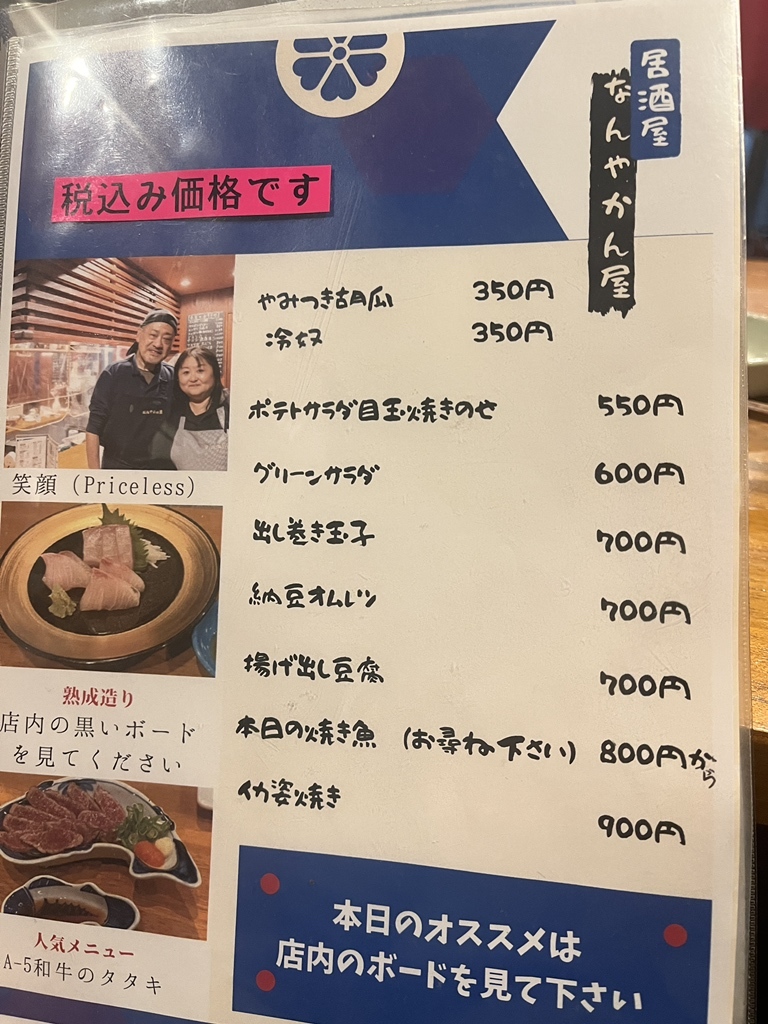 居酒屋
なんやかん屋
税込み価格です
やみつき胡瓜 350円
冷奴 350円
ポテトサラダ目玉焼きのせ 550円
グリーンサラダ 600円
出し巻き玉子 700円
納豆オムレツ 700円
揚げ出し豆腐 700円
本日の焼き魚 (お尋ね下さい) 800円から
イカ姿焼き 900円
笑顔 (Priceless)
熟成造り
店内の黒いボード
を見てください
人気メニュー
A-5和牛のタタキ
本日のオススメは
店内のボードを見て下さい